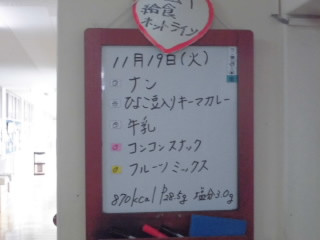 給食
ホットライン
11月19日(火)
ナン
ひよこ豆入りキーマカレー
牛乳
コンコンスナック
フルーツミックス
870kcal P28.5g 塩分3.0g